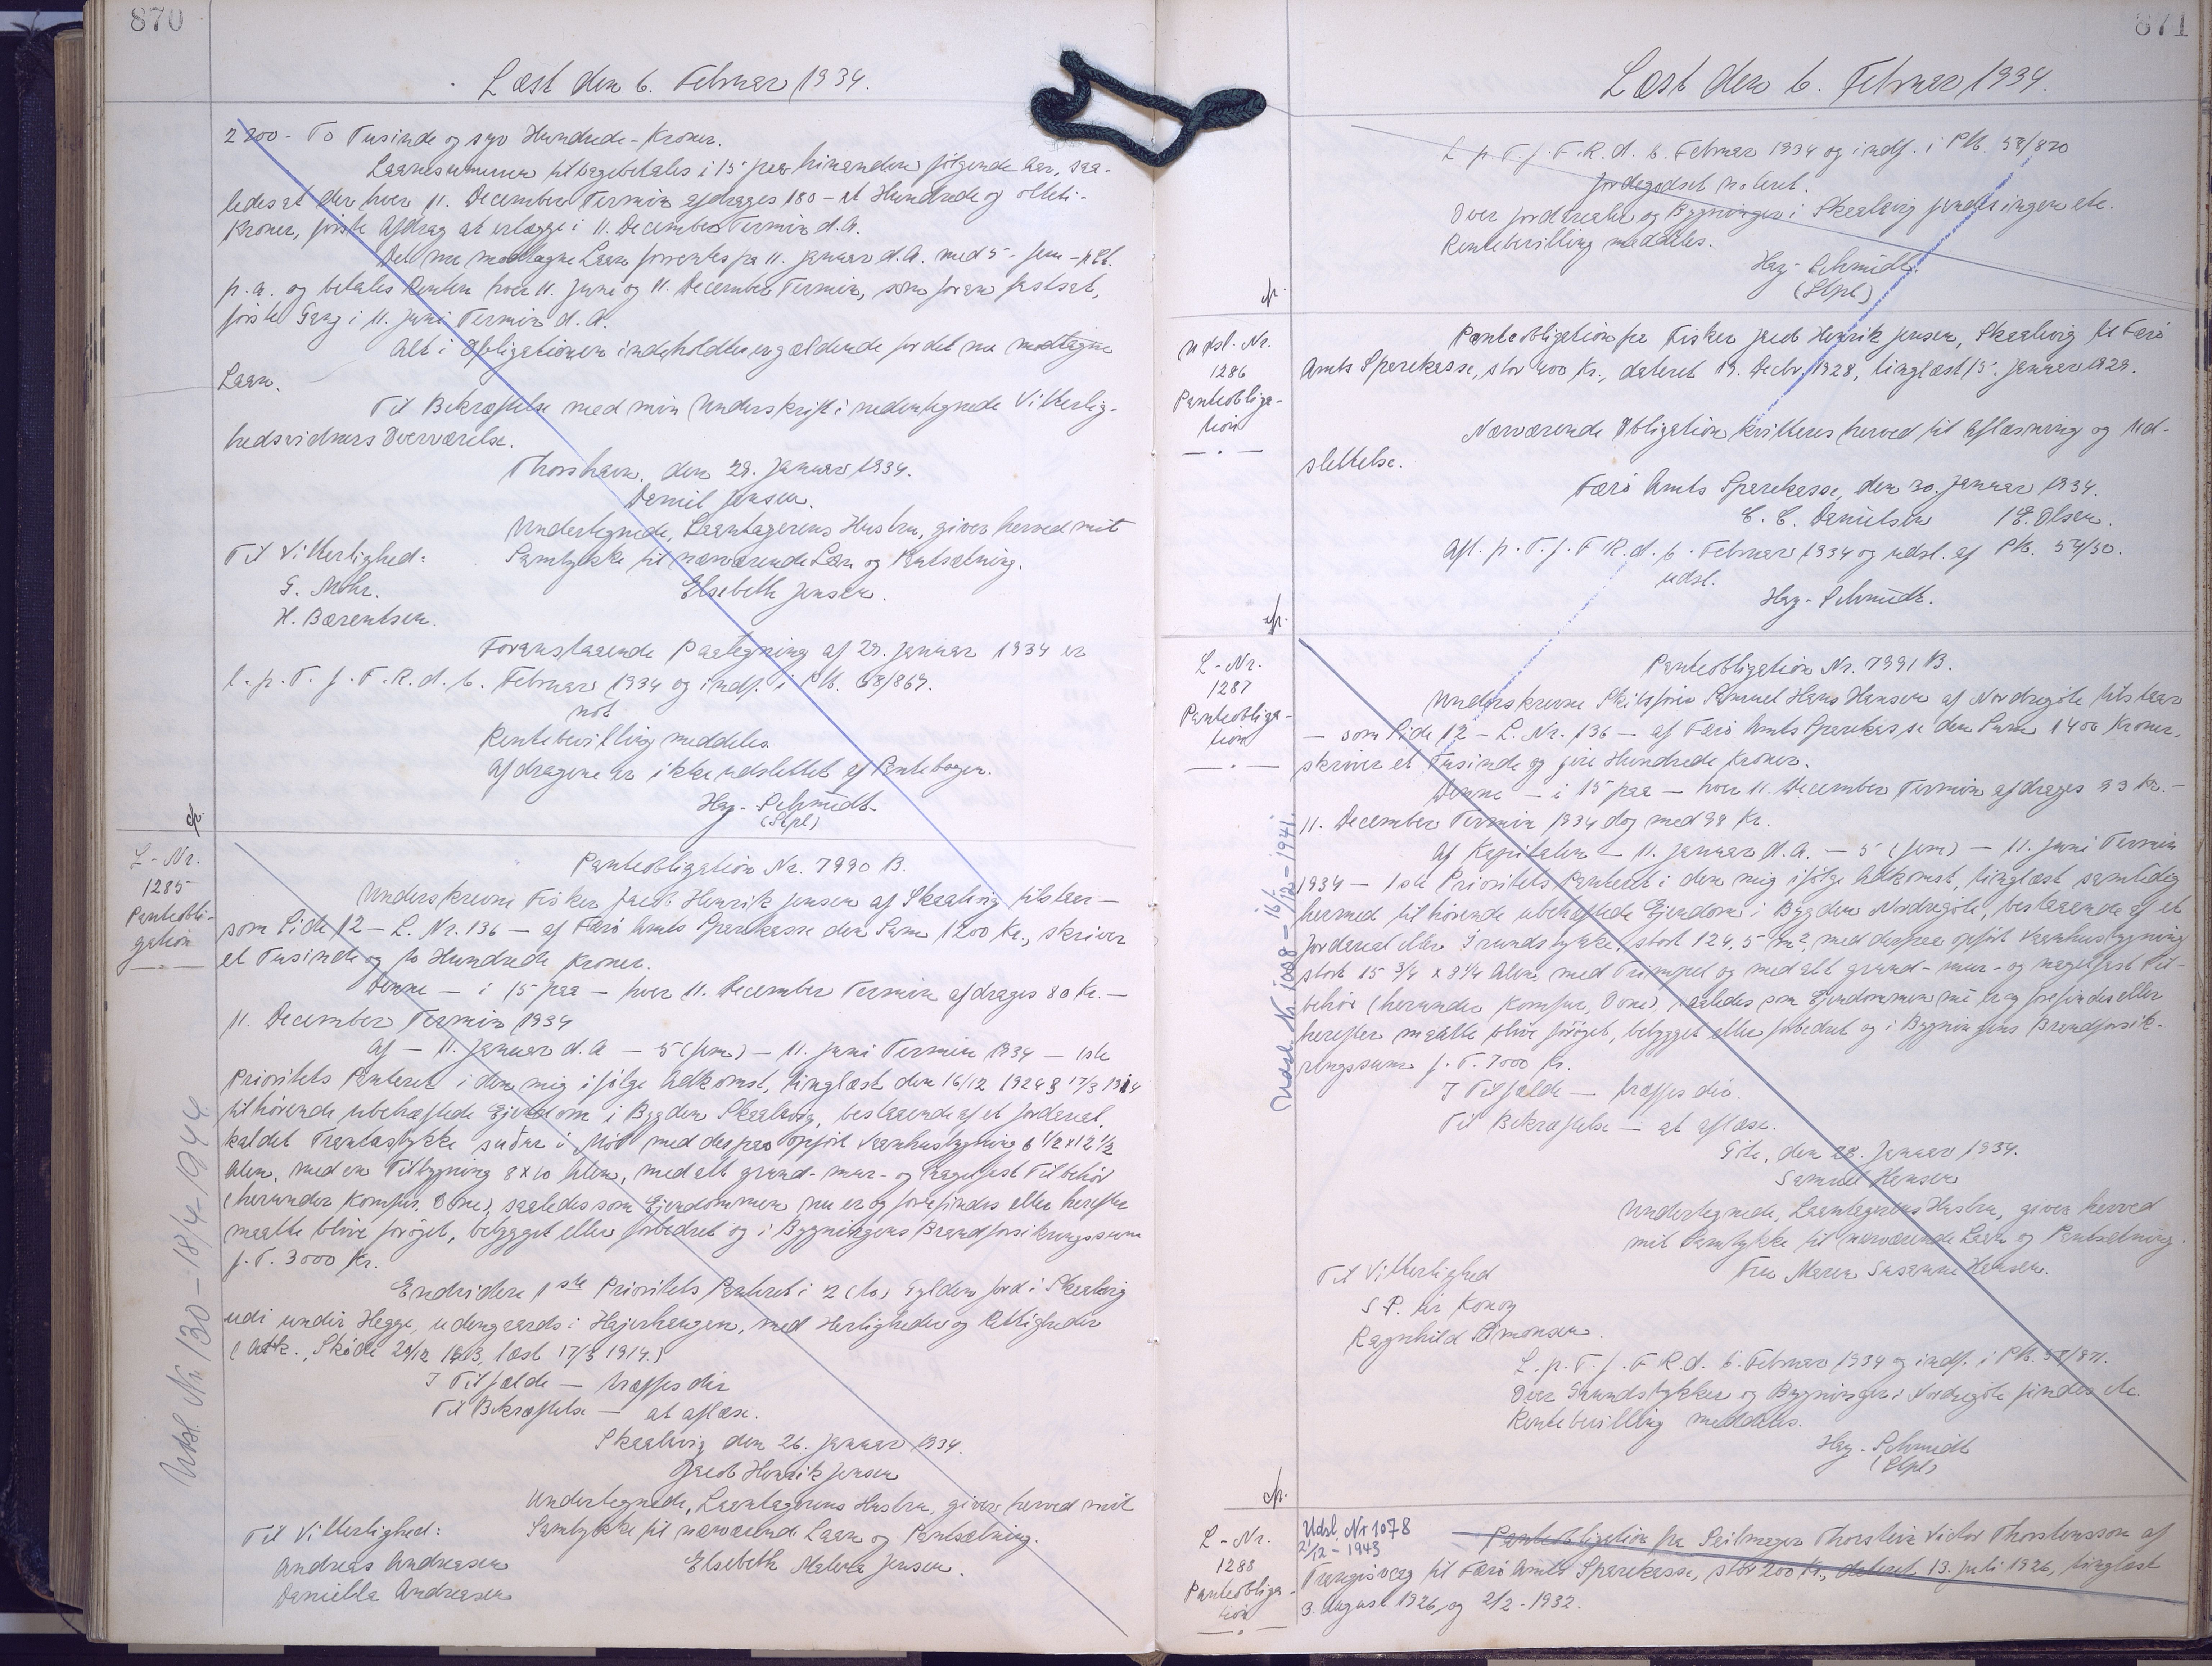 870
Læst den 6. Februar 1934.
2700 - To Tusinde og syv Hundrede - Kroner.
Laanesummen tilbagebetales i 15 paa hinanden følgende Aar, saa-
ledes at der hver 11. December Termin afdrages 180 - et Hundrede og otteti -
Kroner, første Afdrag at erlægge i 11. December Termin d. A.
Det nu modtagne Laan forrentes fra 11. Januar d. A. med 5 - fem - pCt.
p. a. og betales Renten hver 11. Juni og 11. December Termin, som foran fastsat,
første Gang i 11. Juni Termin d. A.
Alt i Obligationen indeholdte er gældende for det nu modtagne
Laan.
Til Bekræftelse med min Underskrift i nedentegnede Vitterlig-
hedsvidners Overværelse.
Thorshavn, den 29. Januar 1934.
Daniel Jensen.
Undertegnede, Laantagerens Hustru, giver herved mit
Til Vitterlighed: Samtykke til nærværende Laan og Pantsætning.
G. Mohr. Elsebeth Jensen.
H. Bærentsen.
Foranstaaende Paategning af 29. Januar 1934 er
l. p. T. f. F. R. d. 6. Februar 1934 og indf. i Pb. 58/869.
not.
Rentebevilling meddeles.
Afdragene er ikke udslettet af Pantebogen.
Hag-Schmidt
(Stpl)
cfr.
L-Nr.
1285
Panteobli-
gation
Panteobligation Nr. 7990 B.
Underskrevne Fisker Jacob Henrik Jensen af Skaalvig tilstaar -
som Side 12 - L. Nr. 136 - af Færø Amts Sparekasse den Sum 1200 Kr., skriver
et Tusinde og to Hundrede Kroner.
Denne - i 15 paa - hver 11. December Termin afdrages 80 Kr. -
11. December Termin 1934
Af - 11. Januar d. A - 5 (fem) - 11. Juni Termin 1934 - 1ste
Prioritets Panteret i den mig ifølge Adkomst, tinglæst den 16/12 1924 & 17/3 1914
tilhørende ubehæftede Ejendom i Bygden Skaalvig, bestaaende af et Jordareal,
kaldet Trantastykke suður i Nós med derpaa opført Vaanhusbygning 6 1/2 x 12 1/2
Alen, med en Tilbygning 8 x 10 Alen, med alt grund- mur- og nagelfast Tilbehør
(herunder Komfur, Ovne), saaledes som Ejendommen nu er og forefindes eller herefter
maatte blive forøget, bebygget eller forbedret og i Bygningens Brandforsikringssum
f. T. 3000 Kr.
Endvidere 1ste Prioritets Panteret i 2 (to) Gylden Jord i Skaalvig
udi undir Hegge, udengaards i Hajerhaugen, med Herligheder og Rettigheder
(Adk., Skøde 29/12 1913, læst 17/3 1914.)
I Tilfælde - træffes dér
Til Bekræftelse - at aflæse.
Skaalvig den 26. Januar 1934.
Jacob Henrik Jensen
Undertegnede, Laantagerens Hustru, giver herved mit
Til Vitterlighed: Samtykke til nærværende Laan og Pantsætning.
Andreas Andreasen Elsebeth Malena Jensen.
Daniella Andreasen
Udsl. Nr. 130 - 18/4 - 1944
871
Læst den 6. Februar 1934.
L. p. T. f. F. R. d. 6. Februar 1934 og indf. i Pb. 58/870
Jordegodset noteret.
Over Jordarealer og Bygninger i Skaalvig findes ingen etc.
Rentebevilling meddeles.
Hag-Schmidt.
(Stpl)
cfr.
Udsl. Nr.
1286
Panteobliga-
tion
Panteobligation fra Fisker Jacob Henrik Jensen, Skaalvig til Færø
Amts Sparekasse, stor 400 Kr., dateret 19. Decbr. 1928, tinglæst 15. Januar 1929.
Nærværende Obligation kvitteres herved til Aflæsning og Ud-
slettelse.
Færø Amts Sparekasse, den 30. Januar 1934.
C. C. Danielsen / E. Olsen.
Afl. p. T. f. F. R. d. 6. Februar 1934 og udsl. af Pb. 54/50.
udsl.
Hag-Schmidt.
cfr.
L-Nr.
1287
Panteobliga-
tion
Panteobligation Nr. 7991 B.
Underskrevne Skibsfører Samuel Hans Hansen af Nordregöte tilstaar
- som Side 12 - L. Nr. 136 - af Færø Amts Sparekasse den Sum 1400 Kroner,
skriver et Tusinde og fire Hundrede Kroner.
Denne - i 15 paa - hver 11. December Termin afdrages 93 Kr. -
11. December Termin 1934 dog med 98 Kr.
Af Kapitalen - 11. Januar d. A. - 5 (fem) - 11. Juni Termin
1934 - 1ste Prioritets Panteret i den mig ifølge Adkomst, tinglæst samtidig
hermed tilhørende ubehæftede Ejendom i Bygden Nordregöte, bestaaende af et
Jordareal eller Grundstykke, stort 124,5 m², med derpaa opført Vaanhusbygning
stort 15 3/4 x 8 1/4 Alen, med Trimpul og med alt grund- mur- og nagelfast Til-
behør (herunder Komfur, Ovne), saaledes som Ejendommen nu er og forefindes eller
herefter maatte blive forøget, bebygget eller forbedret og i Bygningens Brandforsik-
ringssum f. T. 7000 Kr.
I Tilfælde - træffes dér.
Til Bekræftelse - at aflæse.
Göte, den 29. Januar 1934.
Samuel Hansen
Undertegnede, Laantagerens Hustru, giver herved
mit Samtykke til nærværende Laan og Pantsætning.
Til Vitterlighed Fru Maren Susanne Hansen.
S. P. úr Konoy
Ragnhild Simonsen.
L. p. T. f. F. R. d. 6. Februar 1934 og indf. i Pb. 58/871.
Over Grundstykker og Bygninger i Nordregöte findes etc.
Rentebevilling meddeles.
Hag-Schmidt
(Stpl)
Udsl. Nr. 1098 - 16/12 - 1941.
cfr.
L-Nr.
1288
Panteobliga-
tion
Udsl. Nr 1078
21/12 - 1943
Panteobligation fra Seilmager Thorstein Victor Thorsteinsson af
Trangisvaag til Færø Amts Sparekasse, stor 200 Kr., dateret 13. Juli 1926, tinglæst
3. August 1926, og 2/2 - 1932.